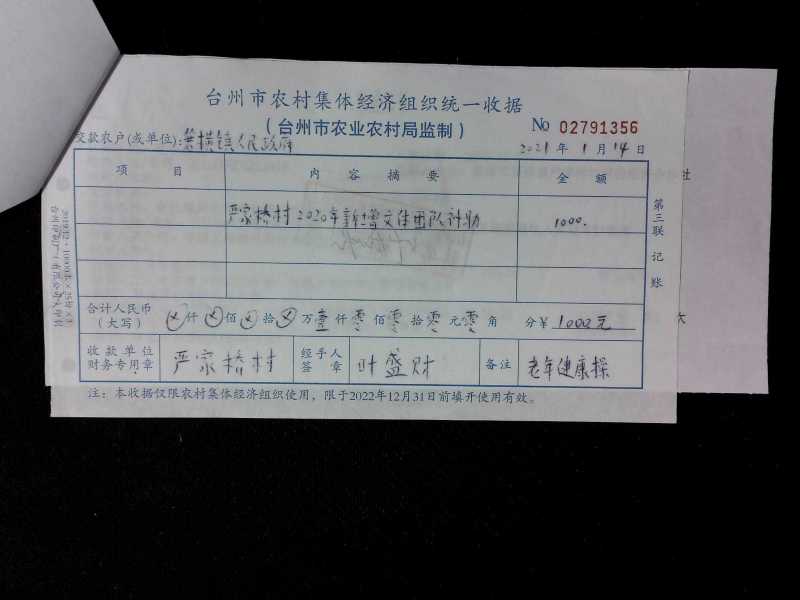 台州市农村集体经济组织统一收据
(台州市农业农村局监制)
No 02791356
交款农户(或单位):箬横镇人民政府
2021年1月14日
项 目 内 容 摘 要 金 额
严家桥村2020年新社曾文体团队计助 1000.
合计人民币(大写) 仟 佰 拾 万壹仟零佰零拾零元零角 分¥1000元
收款单位财务专用章 严家桥村 经手人签章 叶盛财 备注 老年健康操
注:本收据仅限农村集体经济组织使用,限于2022年12月31日前填开使用有效。
第三联 记账
社
大